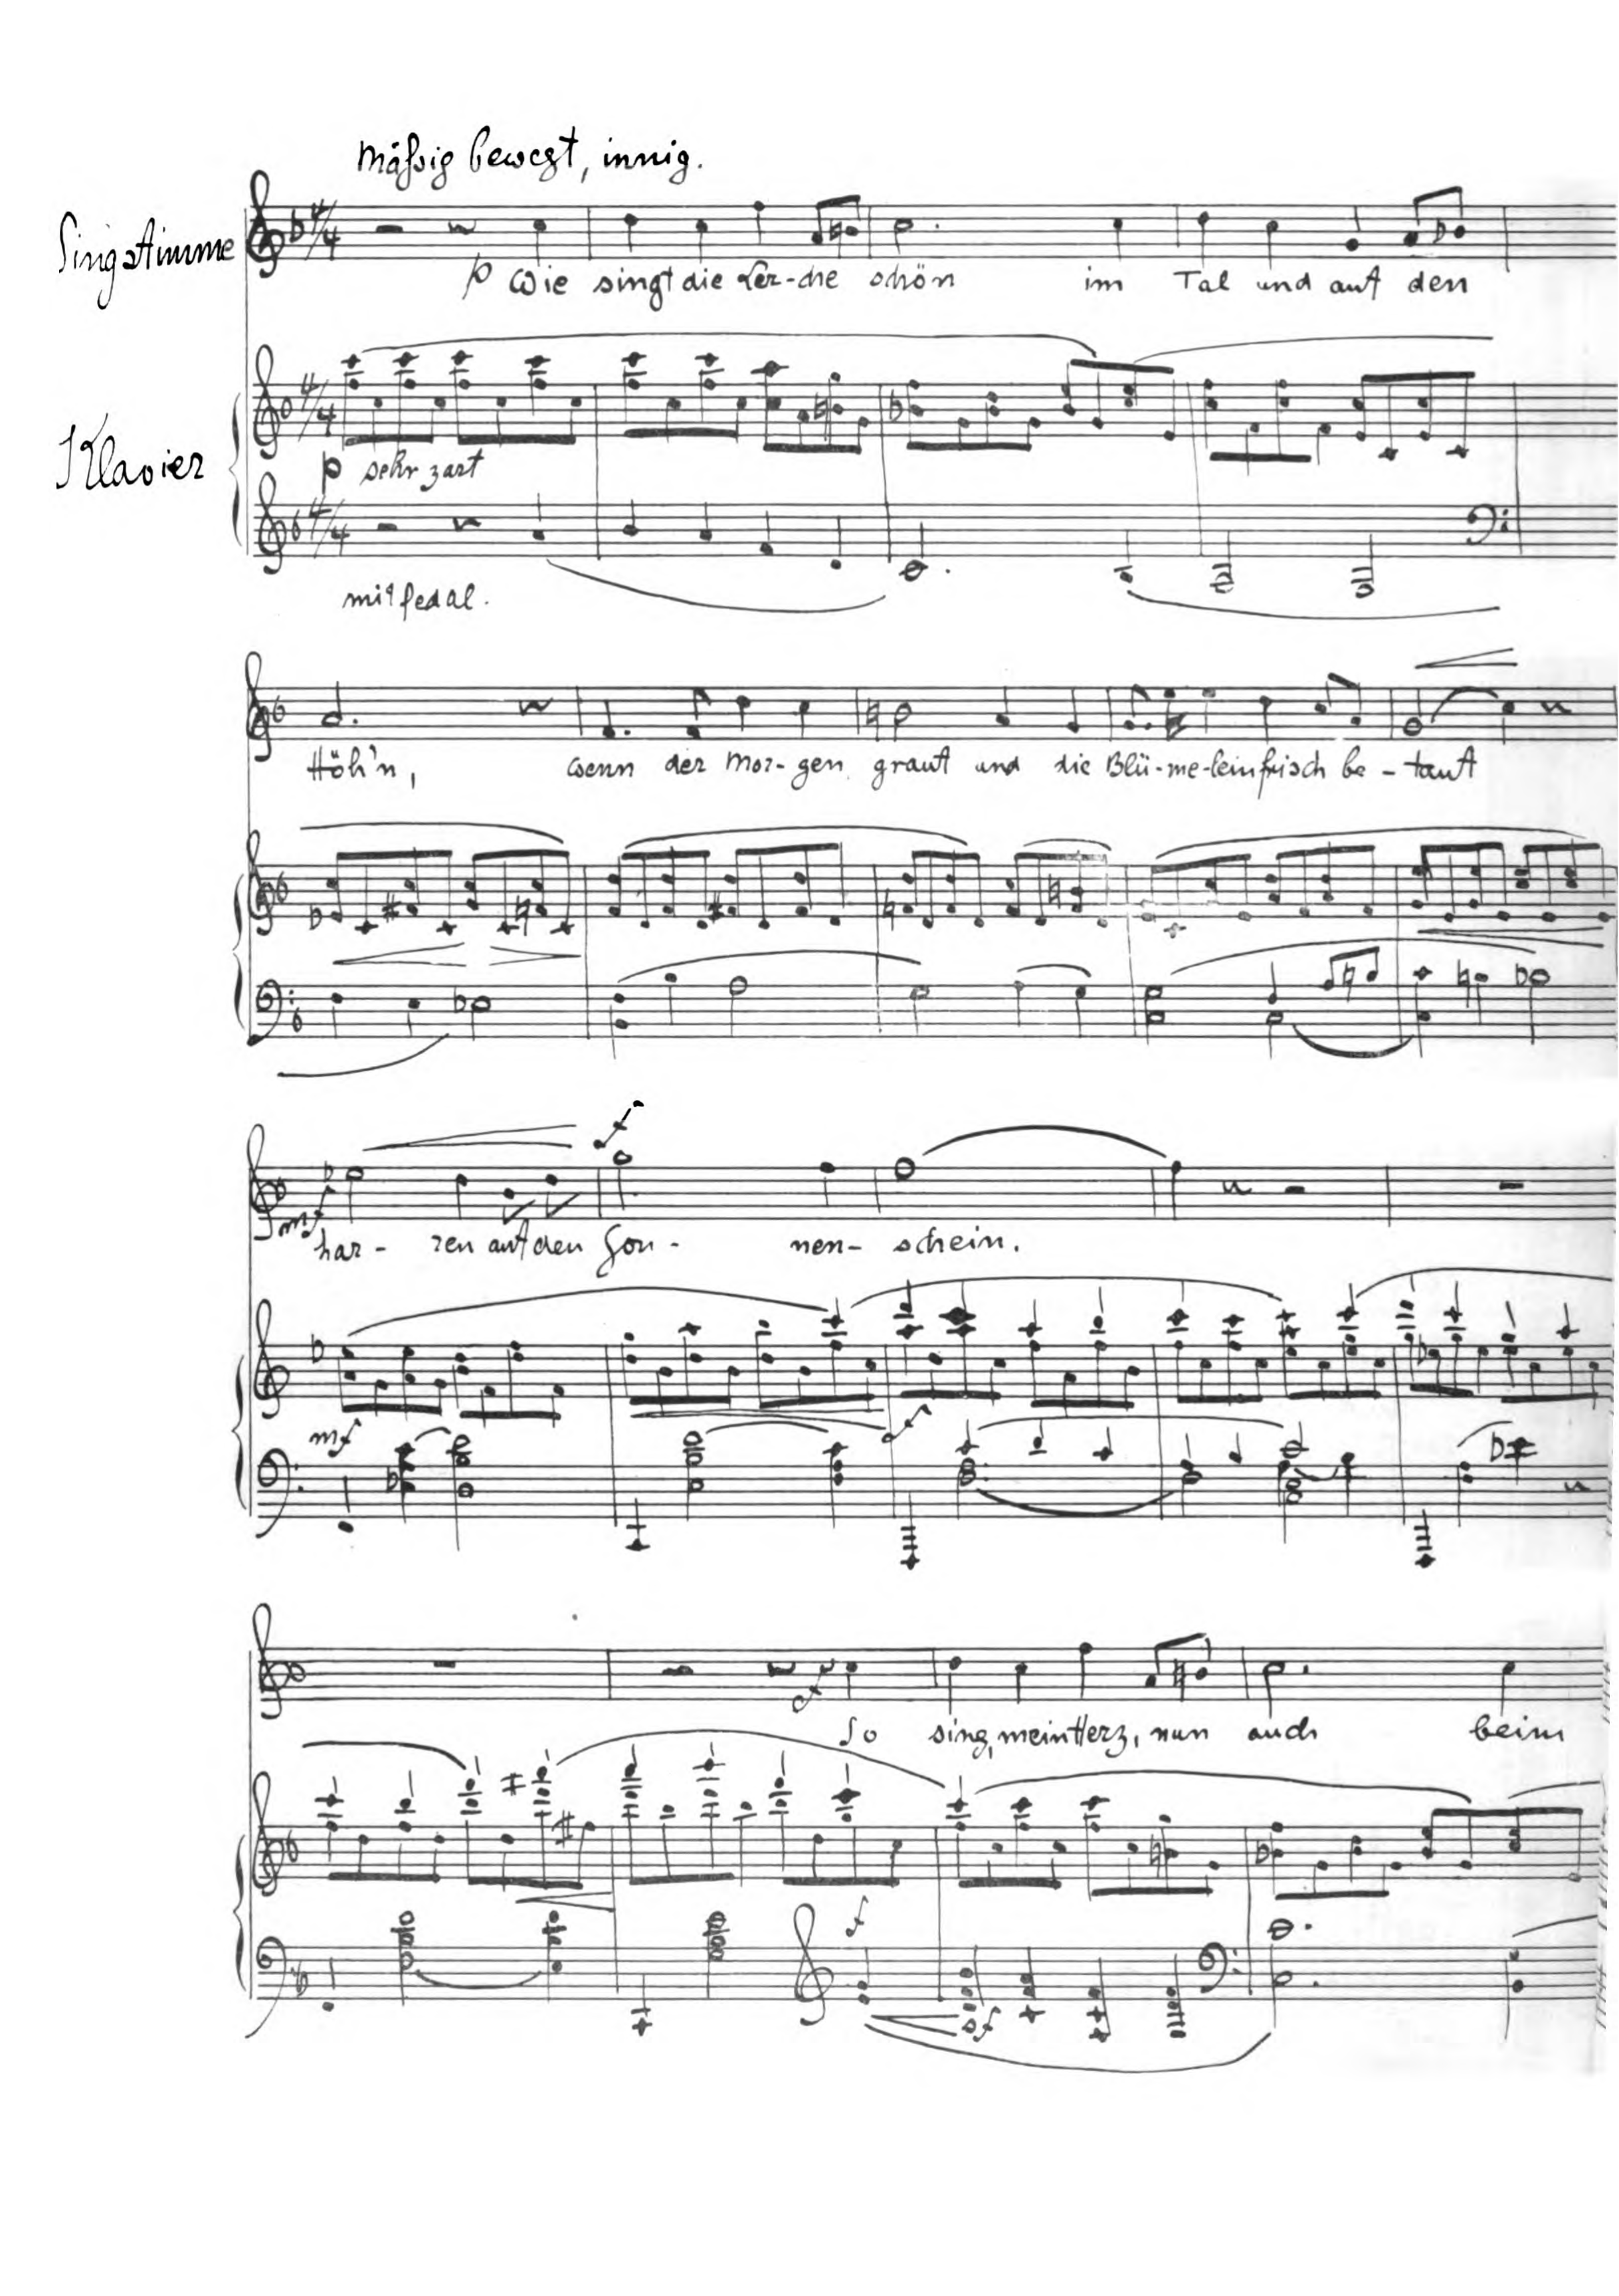 Mäßig bewegt, innig.
Singstimme
p Wie singt die Ler-che schön im Tal und auf den
Klavier
p sehr zart
mit Pedal.
Höh'n, wenn der Mor-gen graut und die Blü-me-lein frisch be-taut
f
mf
har-ren auf den Son-nen-schein.
mf
f
f
So sing, mein Herz, nun auch beim
f
sf